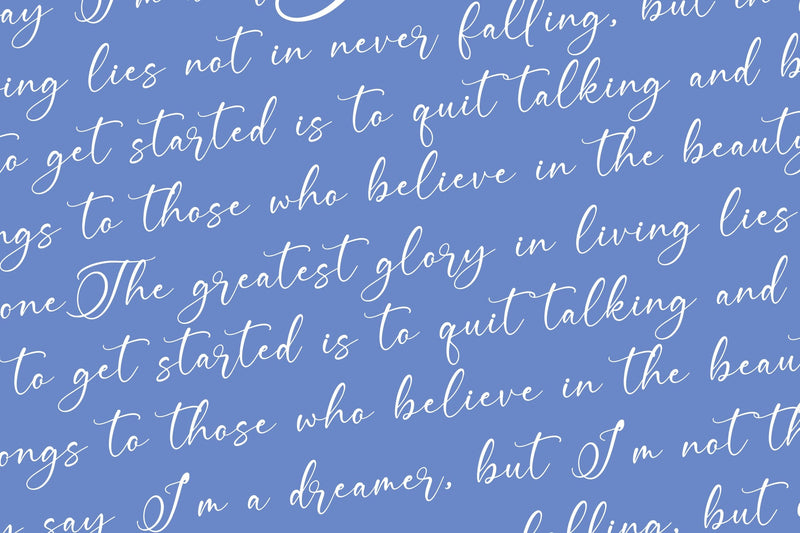 say I'm
ing lies not in never falling, but in
to get started is to quit talking and b
ngs to those who believe in the beauty
one The greatest glory in living lies
to get started is to quit talking and
ongs to those who believe in the beau
say I'm a dreamer, but I'm not th
falling, but